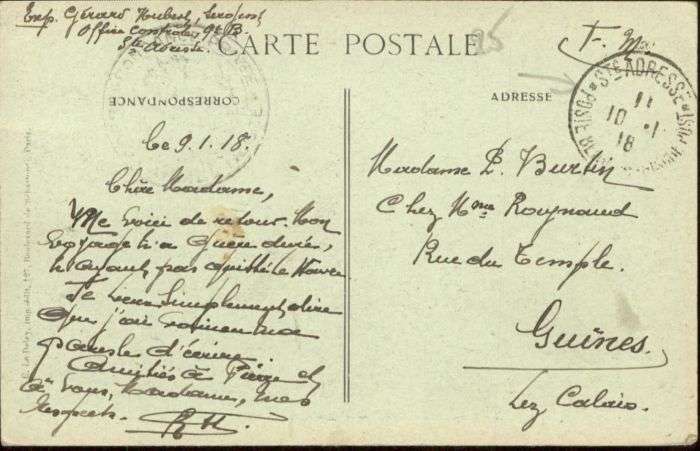 Exp. Gérard Hubert, Sergent
Office contrôle, 9t B.
Ste Adresse.
CARTE POSTALE
F. M.
CORRESPONDANCE
ADRESSE
STE ADRESSE
11
10 - 1
18
Le 9.1.18.
Chère Madame,
Me voici de retour. Mon
voyage n'a guère duré,
n'ayant pas quitté le Havre
Je veux simplement dire
que j'ai vaincu ma
paresse d'écrire.
Amitiés à Pierre et
à vous, Madame, mes
respects.
Madame P. Burtin
Chez Mme Roynaud
Rue du Temple.
Guînes.
Lez Calais.